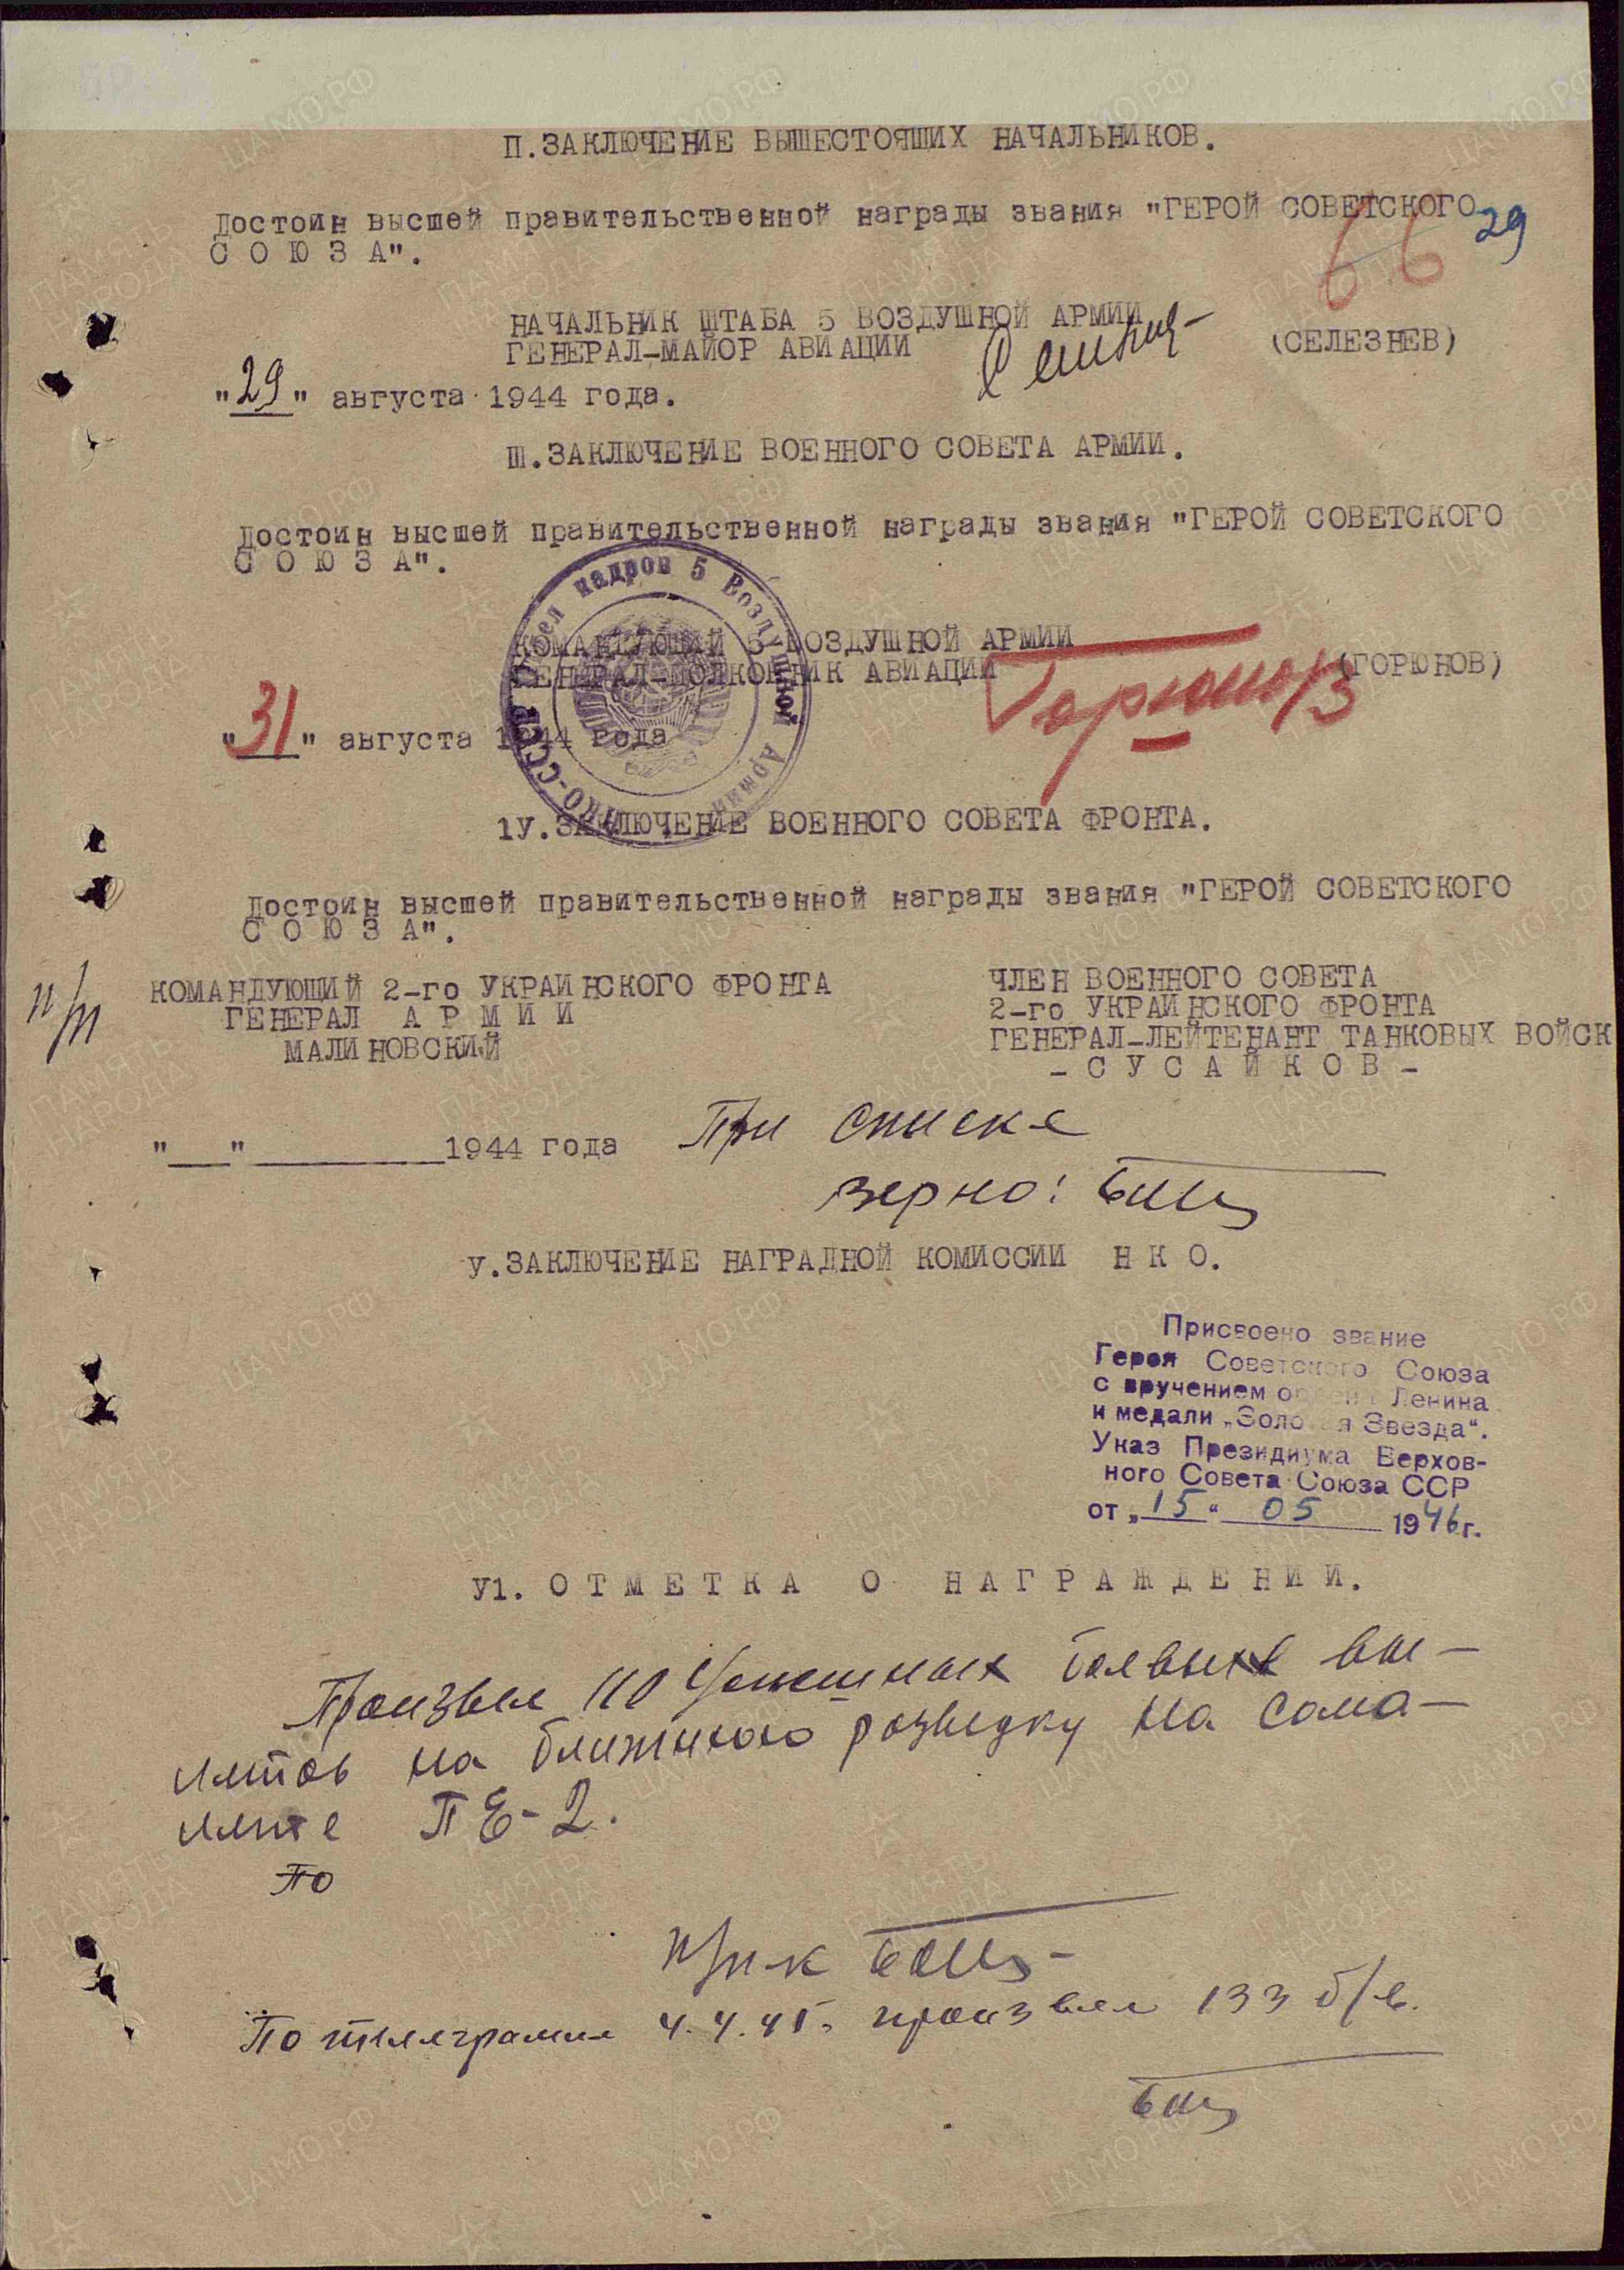 П.ЗАКЛЮЧЕНИЕ ВЫШЕСТОЯЩИХ НАЧАЛЬНИКОВ.
Достоин высшей правительственной награды звания "ГЕРОЙ СОВЕТСКОГО
С О Ю З А".
66 29
НАЧАЛЬНИК ШТАБА 5 ВОЗДУШНОЙ АРМИИ
ГЕНЕРАЛ-МАЙОР АВИАЦИИ (СЕЛЕЗНЕВ)
"29" августа 1944 года.
Ш.ЗАКЛЮЧЕНИЕ ВОЕННОГО СОВЕТА АРМИИ.
Достоин высшей правительственной награды звания "ГЕРОЙ СОВЕТСКОГО
С О Ю З А".
НКО-СССР Отдел кадров 5 Воздушной Армии
КОМАНДУЮЩИЙ 5 ВОЗДУШНОЙ АРМИИ
ГЕНЕРАЛ-ПОЛКОВНИК АВИАЦИИ Горюнов (ГОРЮНОВ)
"31" августа 1944 года
1У.ЗАКЛЮЧЕНИЕ ВОЕННОГО СОВЕТА ФРОНТА.
Достоин высшей правительственной награды звания "ГЕРОЙ СОВЕТСКОГО
С О Ю З А".
п/п КОМАНДУЮЩИЙ 2-го УКРАИНСКОГО ФРОНТА
ГЕНЕРАЛ А Р М И И
МАЛИНОВСКИЙ
ЧЛЕН ВОЕННОГО СОВЕТА
2-го УКРАИНСКОГО ФРОНТА
ГЕНЕРАЛ-ЛЕЙТЕНАНТ ТАНКОВЫХ ВОЙСК
- С У С А Й К О В -
"___" __________1944 года
При списке
верно:
У.ЗАКЛЮЧЕНИЕ НАГРАДНОЙ КОМИССИИ Н К О.
Присвоено звание
Героя Советского Союза
с вручением ордена Ленина
и медали „Золотая Звезда“.
Указ Президиума Верхов-
ного Совета Союза ССР
от „15“ 05 1946г.
У1. О Т М Е Т К А О Н А Г Р А Ж Д Е Н И И.
Произвел 110 успешных боевых вы-
летов на ближнюю разведку на само-
лете ПЕ-2.
по
п/п-к
По телеграмме 4.4.45г. произвел 133 б/в.